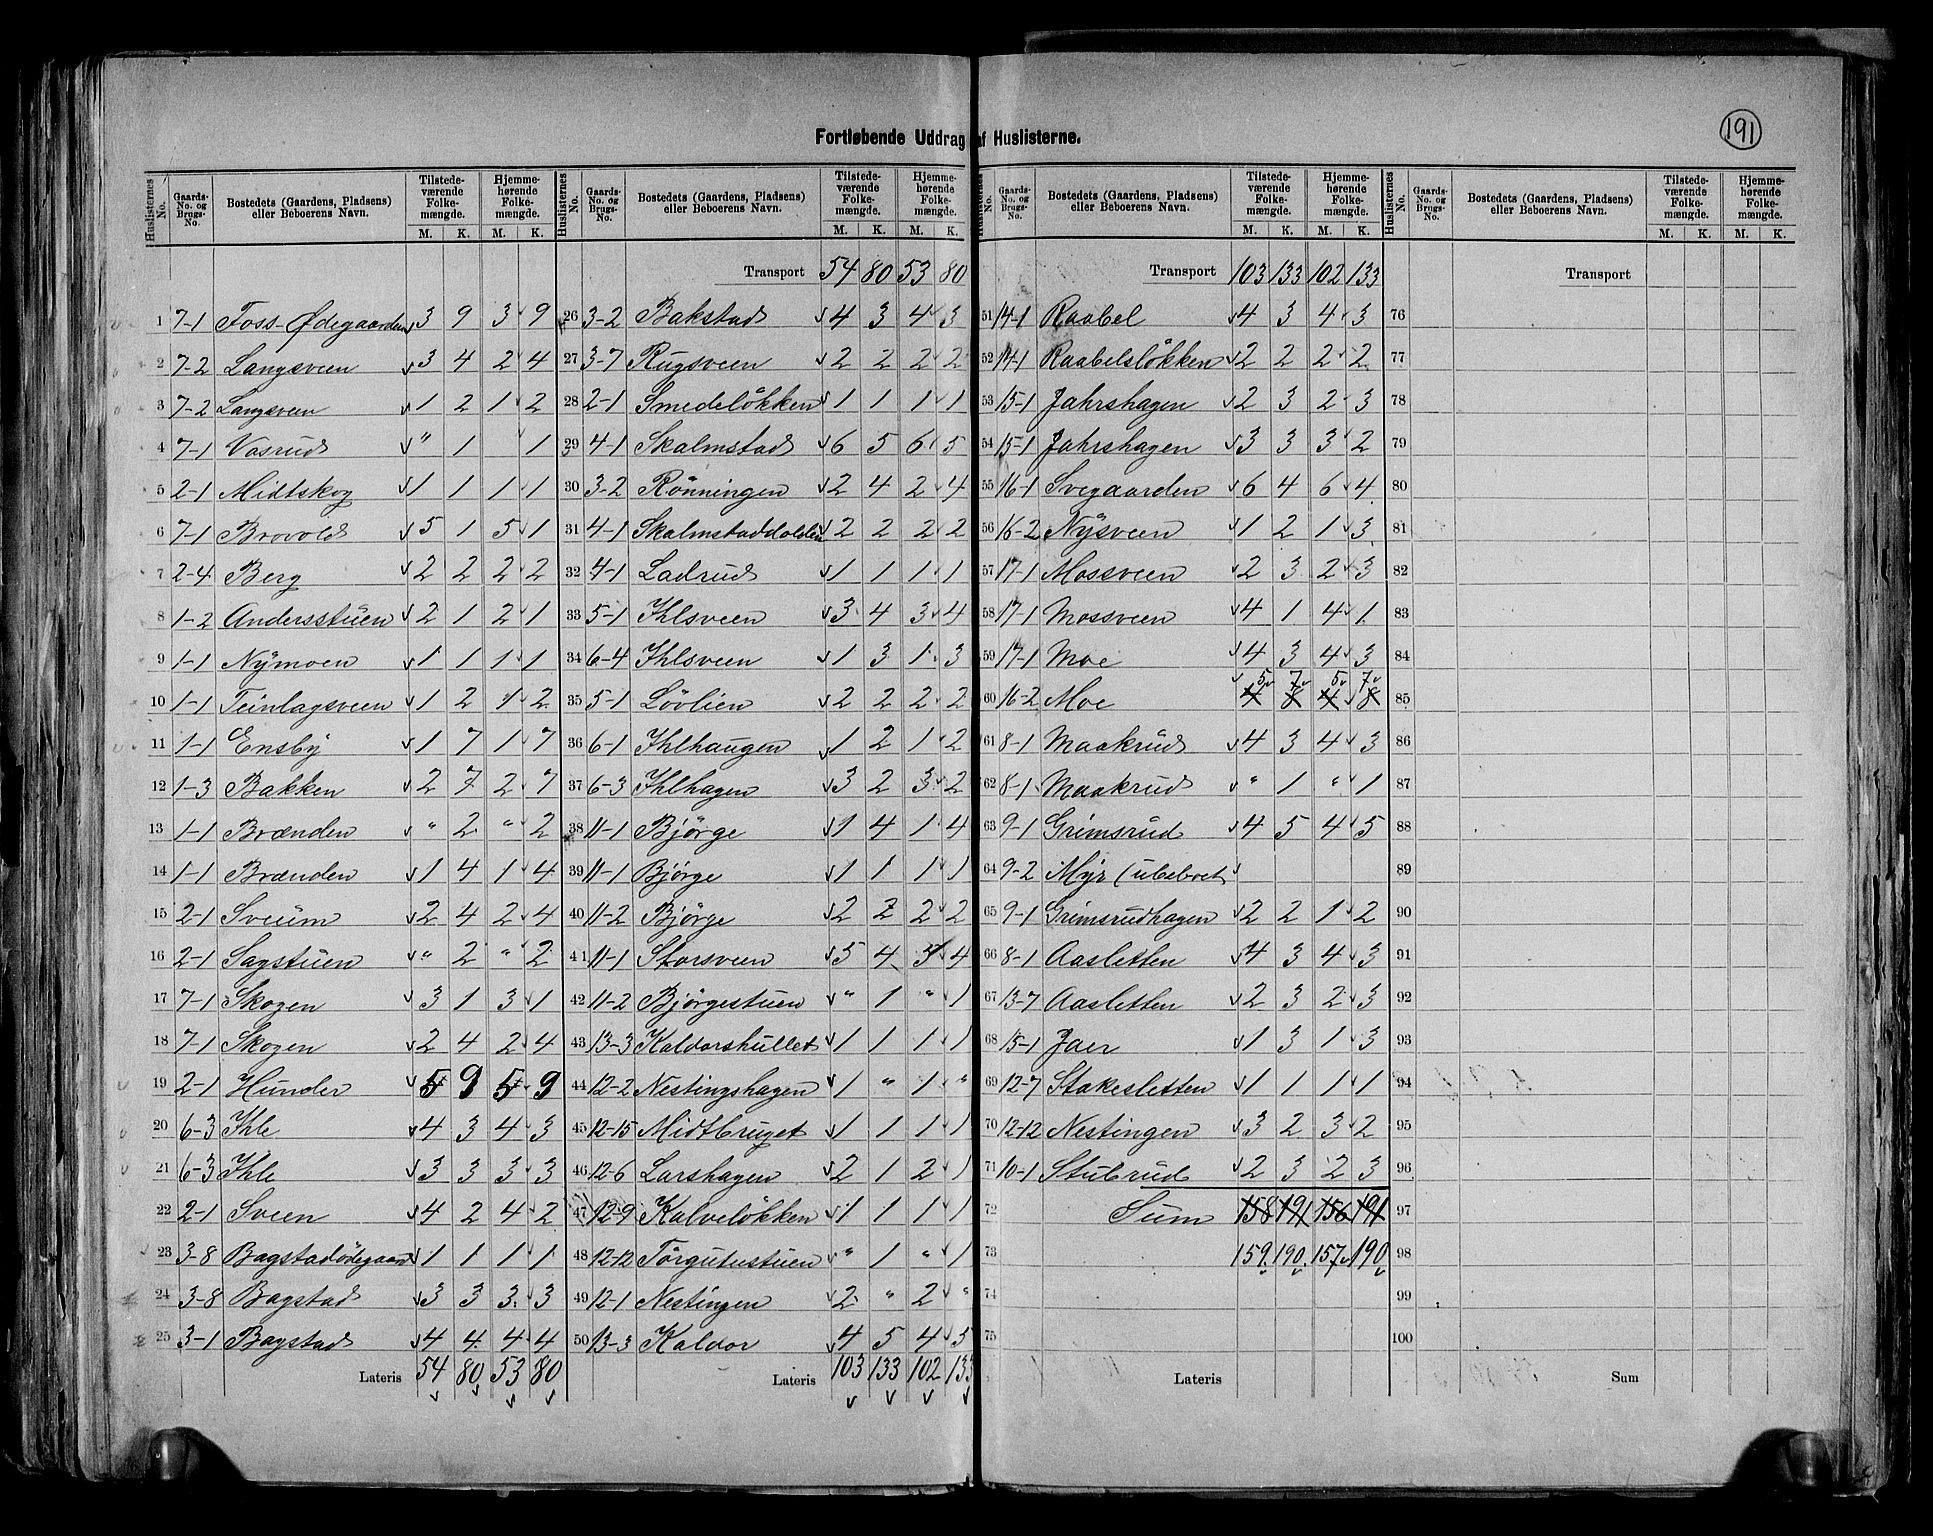 191
Fortløbende Uddrag af Huslisterne.
Huslisternes No. Gaards-No. og Brugs-No. Bostedets (Gaardens, Pladsens) eller Beboerens Navn. Tilstedeværende Folkemængde. M. K. Hjemmehørende Folkemængde. M. K.
1 7-1 Foss-Ødegaarden 3 9 3 9
2 7-2 Langsveen 3 4 2 4
3 7-2 Langsveen 1 2 1 2
4 7-1 Vasrud " 1 1
5 2-1 Midtskog 1 1 1 1
6 7-1 Brovold 5 1 5 1
7 2-4 Berg 2 2 2 2
8 1-2 Andersstuen 2 1 2 1
9 1-1 Nymoen 1 1 1 1
10 1-1 Teinlagsveen 1 2 1 2
11 1-1 Ensby 1 7 1 7
12 1-3 Bakken 2 7 2 7
13 1-1 Brænden " 2 " 2
14 1-1 Brænden 1 4 1 4
15 2-1 Sveum 2 4 2 4
16 2-1 Sagstuen " 2 " 2
17 7-1 Skogen 3 1 3 1
18 7-1 Skogen 2 4 2 4
19 2-1 Hunder 5 9 5 9
20 6-3 Ihle 4 3 4 3
21 6-3 Ihle 3 3 3 3
22 2-1 Sveen 4 2 4 2
23 3-8 Bagstadødegaard 1 1 1 1
24 3-8 Bagstad 3 3 3 3
25 3-1 Bagstad 4 4 4 4
Lateris 54 80 53 80
Huslisternes No. Gaards-No. og Brugs-No. Bostedets (Gaardens, Pladsens) eller Beboerens Navn. Tilstedeværende Folkemængde. M. K. Hjemmehørende Folkemængde. M. K.
Transport 54 80 53 80
26 3-2 Bakstad 4 3 4 3
27 3-7 Rugsveen 2 2 2 2
28 2-1 Smedeløkken 1 1 1 1
29 4-1 Skalmstad 6 5 6 5
30 3-2 Rønningen 2 4 2 4
31 4-1 Skalmstaddolden 2 2 2 2
32 4-1 Ladrud 1 1 1 1
33 5-1 Ihlsveen 3 4 3 4
34 6-4 Ihlsveen 1 3 1 3
35 5-1 Løvlien 2 2 2 2
36 6-1 Ihlhaugen 1 2 1 2
37 6-3 Ihlhagen 3 2 3 2
38 11-1 Bjørge 1 4 1 4
39 11-1 Bjørge 1 1 1 1
40 11-2 Bjørge 2 2 2 2
41 11-1 Storsveen 5 4 5 4
42 11-2 Bjørgestuen " 1 " 1
43 13-3 Kaldorshullet 1 1 1 1
44 12-2 Nestingshagen 1 " 1 "
45 12-15 Midtbruget 1 1 1 1
46 12-6 Larshagen 2 1 2 1
47 12-9 Kalveløkken 1 1 1 1
48 12-12 Törgutustuen " 1 " 1
49 12-1 Nestingen 2 " 2 "
50 13-3 Kaldor 4 5 4 5
Lateris 103 133 102 133
Huslisternes No. Gaards-No. og Brugs-No. Bostedets (Gaardens, Pladsens) eller Beboerens Navn. Tilstedeværende Folkemængde. M. K. Hjemmehørende Folkemængde. M. K.
Transport 103 133 102 133
51 14-1 Raabel 4 3 4 3
52 14-1 Raabelsløkken 2 2 2 2
53 15-1 Jahrshagen 2 3 2 3
54 15-1 Jahrshagen 3 3 3 2
55 16-1 Svegaarden 6 4 6 4
56 16-2 Nysveen 1 2 1 3
57 17-1 Mossveen 2 3 2 3
58 17-1 Mossveen 4 1 4 1
59 17-1 Moe 4 3 4 3
5 7 5 7
60 16-2 Moe 4 8 4 8
61 8-1 Maakrud 4 3 4 3
62 8-1 Maakrud " 1 " 1
63 9-1 Grimsrud 4 5 4 5
64 9-2 Myr (ubeboet
65 9-1 Grimsrudhagen 2 2 1 2
66 8-1 Aasletten 4 3 4 3
67 13-7 Aasletten 2 3 2 3
68 15-1 Jaer 1 3 1 3
69 12-7 Stakesletten 1 1 1 1
70 12-12 Nestingen 3 2 3 2
71 10-1 Stubrud 2 3 2 3
72 Sum 158 191 156 191
73 159 190 157 190
74
75
Lateris
Huslisternes No. Gaards-No. og Brugs-No. Bostedets (Gaardens, Pladsens) eller Beboerens Navn. Tilstedeværende Folkemængde. M. K. Hjemmehørende Folkemængde. M. K.
Transport
76
77
78
79
80
81
82
83
84
85
86
87
88
89
90
91
92
93
94
95
96
97
98
99
100
Sum